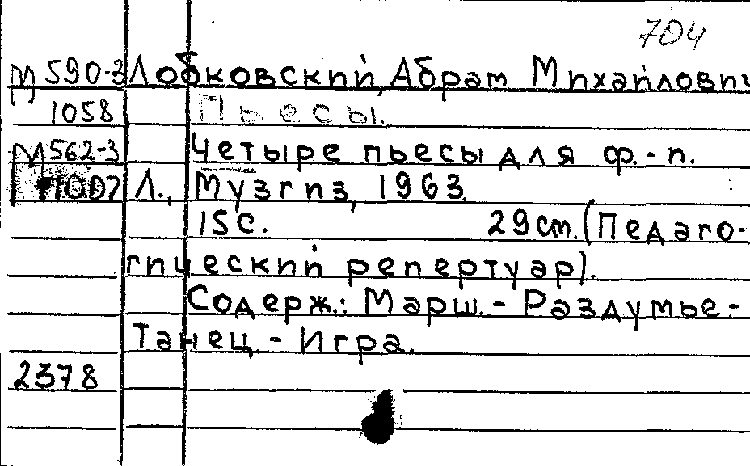 704
М 590-3 Лобковский, Абрам Михайлович
1058 Пьесы.
М 562-3 Четыре пьесы для ф.-п.
Л., Музгиз, 1963.
15с. 29см. (Педаго-
гический репертуар).
Содерж.: Марш.- Раздумье-
Танец.- Игра.
2378